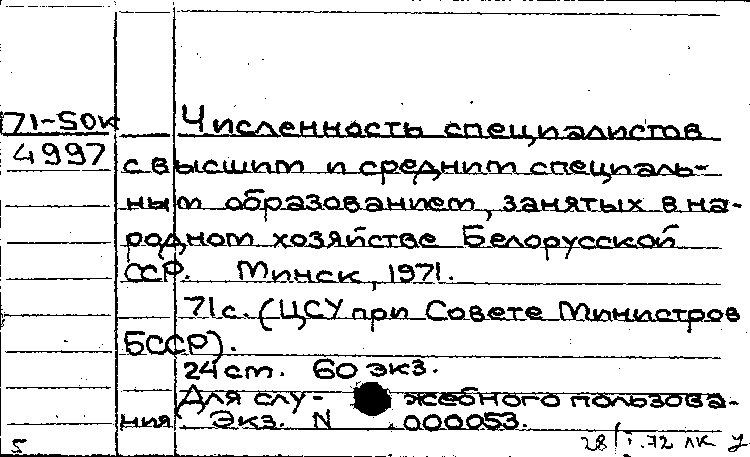 71-50к
4997
Численность специалистов
с высшим и средним специаль-
ным образованием, занятых в на-
родном хозяйстве Белорусской
ССР. Минск, 1971.
71 с. (ЦСУ при Совете Министров
БССР).
24 см. 60 экз.
Для слу- жебного пользова-
ния. Экз. N 000053.
5
28/I.72 ЛК